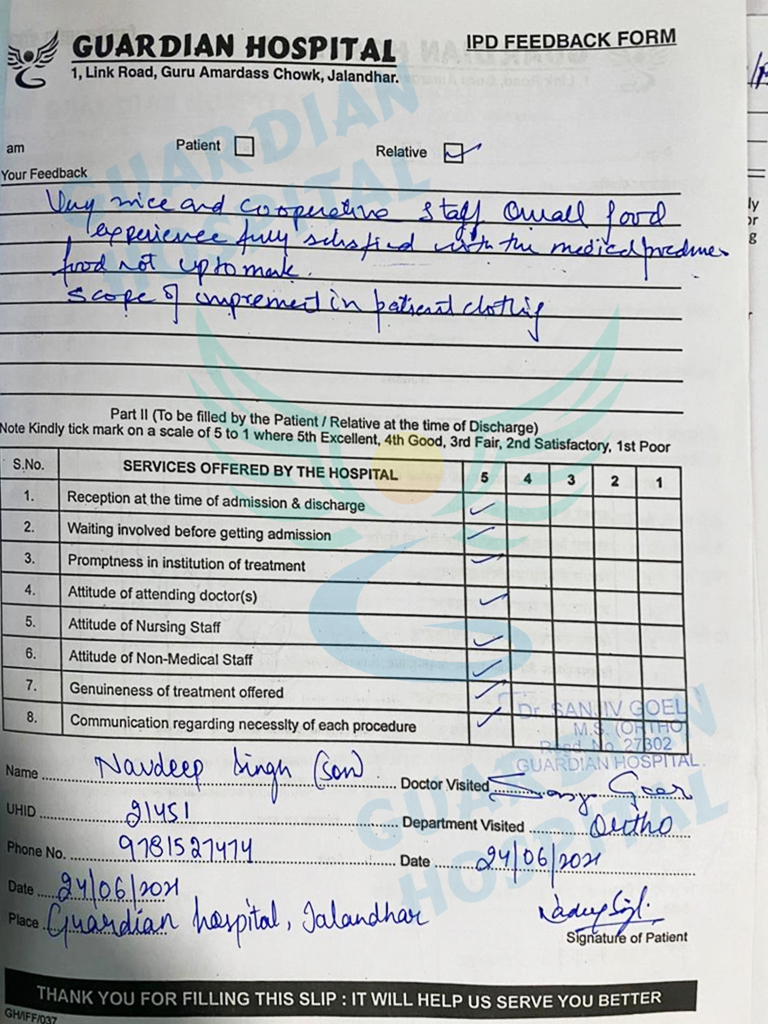 GUARDIAN HOSPITAL
IPD FEEDBACK FORM
1, Link Road, Guru Amardass Chowk, Jalandhar.
am Patient Relative ✓
Your Feedback
Very nice and cooperative staff Overall good
experience fully satisfied with the medical
food not up to mark.
Scope of in patient clothing
Part II (To be filled by the Patient / Relative at the time of Discharge)
Note Kindly tick mark on a scale of 5 to 1 where 5th Excellent, 4th Good, 3rd Fair, 2nd Satisfactory, 1st Poor
S.No. SERVICES OFFERED BY THE HOSPITAL 5 4 3 2 1
1. Reception at the time of admission & discharge ✓
2. Waiting involved before getting admission ✓
3. Promptness in institution of treatment ✓
4. Attitude of attending doctor(s) ✓
5. Attitude of Nursing Staff ✓
6. Attitude of Non-Medical Staff ✓
7. Genuineness of treatment offered ✓
8. Communication regarding necessity of each procedure ✓
Dr. SANJIV GOEL
M.S. (ORTHO)
Regd. No. 27302
GUARDIAN HOSPITAL.
Name Navdeep Singh (son) Doctor Visited
UHID 21451 Department Visited Ortho
Phone No. 9781527474 Date 24/06/2021
Date 24/06/2021
Place Guardian hospital, Jalandhar
Signature of Patient
THANK YOU FOR FILLING THIS SLIP : IT WILL HELP US SERVE YOU BETTER
GH/IFF/037
GUARDIAN
HOSPITAL
GUARDIAN
HOSPITAL